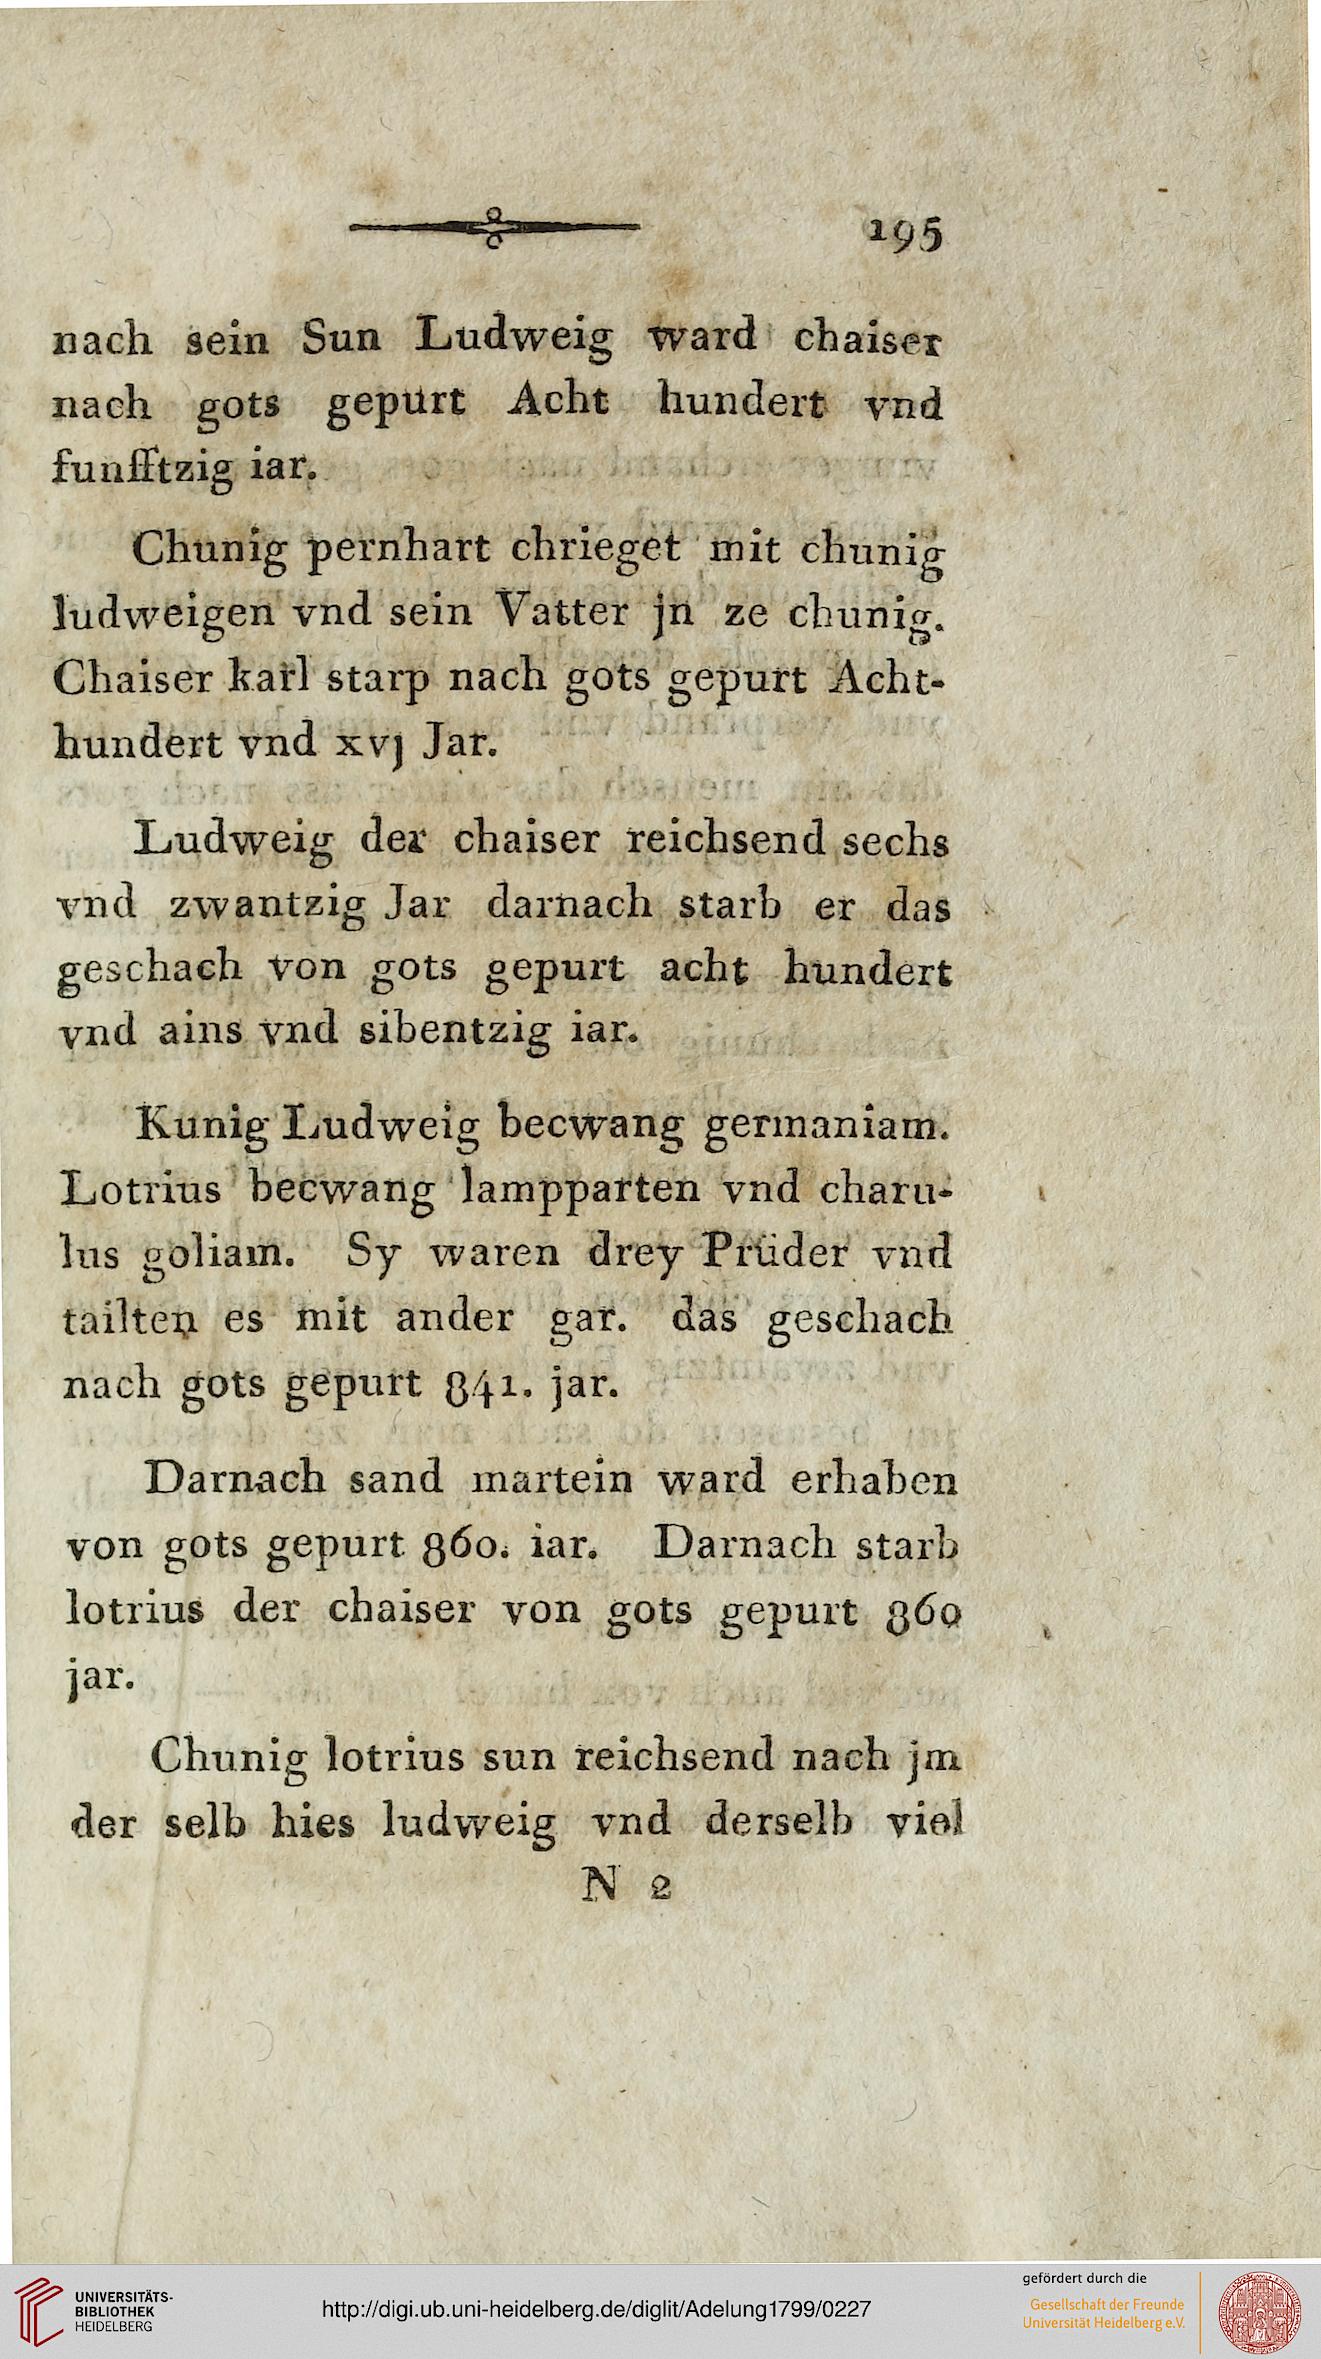 195
nach sein Sun Ludweig ward chaiser
nach gots gepurt Acht hundert vnd
funfftzig iar.
Chunig pernhart chrieget mit chunig
ludweigen vnd sein Vatter jn ze chunig.
Chaiser karl starp nach gots gepurt Acht-
hundert vnd xvj Jar.
Ludweig der chaiser reichsend sechs
vnd zwantzig Jar darnach starb er das
geschach von gots gepurt acht hundert
vnd ains vnd sibentzig iar.
Kunig Ludweig becwang germaniam.
Lotrius becwang lampparten vnd charu-
lus goliam. Sy waren drey Prüder vnd
tailten es mit ander gar. das geschach
nach gots gepurt 841. jar.
Darnach sand martein ward erhaben
von gots gepurt 860. iar. Darnach starb
lotrius der chaiser von gots gepurt 860
jar.
Chunig lotrius sun reichsend nach jm
der selb hies ludweig vnd derselb viel
N 2
UNIVERSITÄTS-
BIBLIOTHEK
HEIDELBERG
http://digi.ub.uni-heidelberg.de/diglit/Adelung1799/0227
gefördert durch die
Gesellschaft der Freunde
Universität Heidelberg e.V.